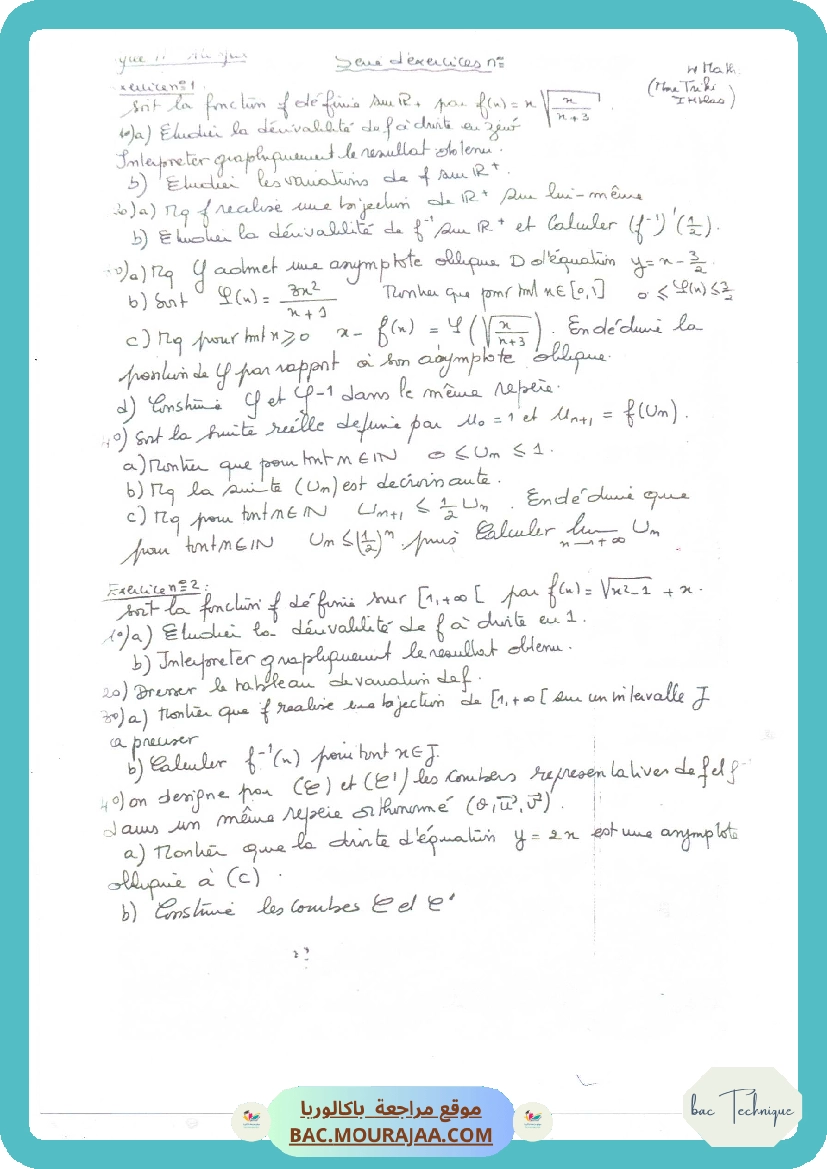 Serie d'exercices n=
Math
(Mme Triki
Exercice n=1
Soit la fonction f définie sur IR+ par f(x) = x √(x/(x+3)).
1°)a) Etudier la dérivabilité de f à droite en zéro
Interpreter graphiquement le resultat obtenu.
b) Etudier les variations de f sur IR+.
2o)a) Mq f realise une bijection de IR+ sur lui-même
b) Etudier la dérivabilité de f⁻¹ sur IR+ et Calculer (f⁻¹)'(1/2).
a) Mq φ admet une asymptote oblique D d'équation y = x - 3/2
b) Soit φ(x) = 3x²/(x+1) Montrer que pour tout x ∈ [0,1] 0 ≤ φ(x) ≤ 3/2
c) Mq pour tout x ≥ 0 x - f(x) = φ(√(x/(x+3))). En déduire la
position de φ par rapport à son asymptote oblique.
d) Construire φ et φ-1 dans le même repère.
4o) Soit la suite réelle definie par U0 = 1 et Un+1 = f(Un).
a) Montrer que pour tout n ∈ IN 0 ≤ Un ≤ 1.
b) Mq la suite (Un) est decroissante.
c) Mq pour tout n ∈ IN Un+1 ≤ 1/2 Un. En déduire que
pour tout n ∈ IN Un ≤ (1/2)ⁿ. puis Calculer lim n→+∞ Un
Exercice n=2:
Soit la fonction f définie sur [1,+∞[ par f(x) = √(x²-1) + x.
1°)a) Etudier la dérivabilité de f à droite en 1.
b) Interpreter graphiquement le resultat obtenu.
2o) Dresser le tableau de variation de f.
3o)a) Montrer que f realise une bijection de [1,+∞[ sur un intervalle J
a preciser
b) Calculer f⁻¹(x) pour tout x ∈ J.
4o) on designe par (C) et (C') les courbes representatives de f et f⁻¹
dans un même repère orthonormé (O, u⃗, v⃗).
a) Montrer que la droite d'équation y = 2x est une asymptote
oblique à (C).
b) Construire les courbes C et C'
موقع مراجعة باكالوريا
BAC.MOURAJAA.COM
bac Technique